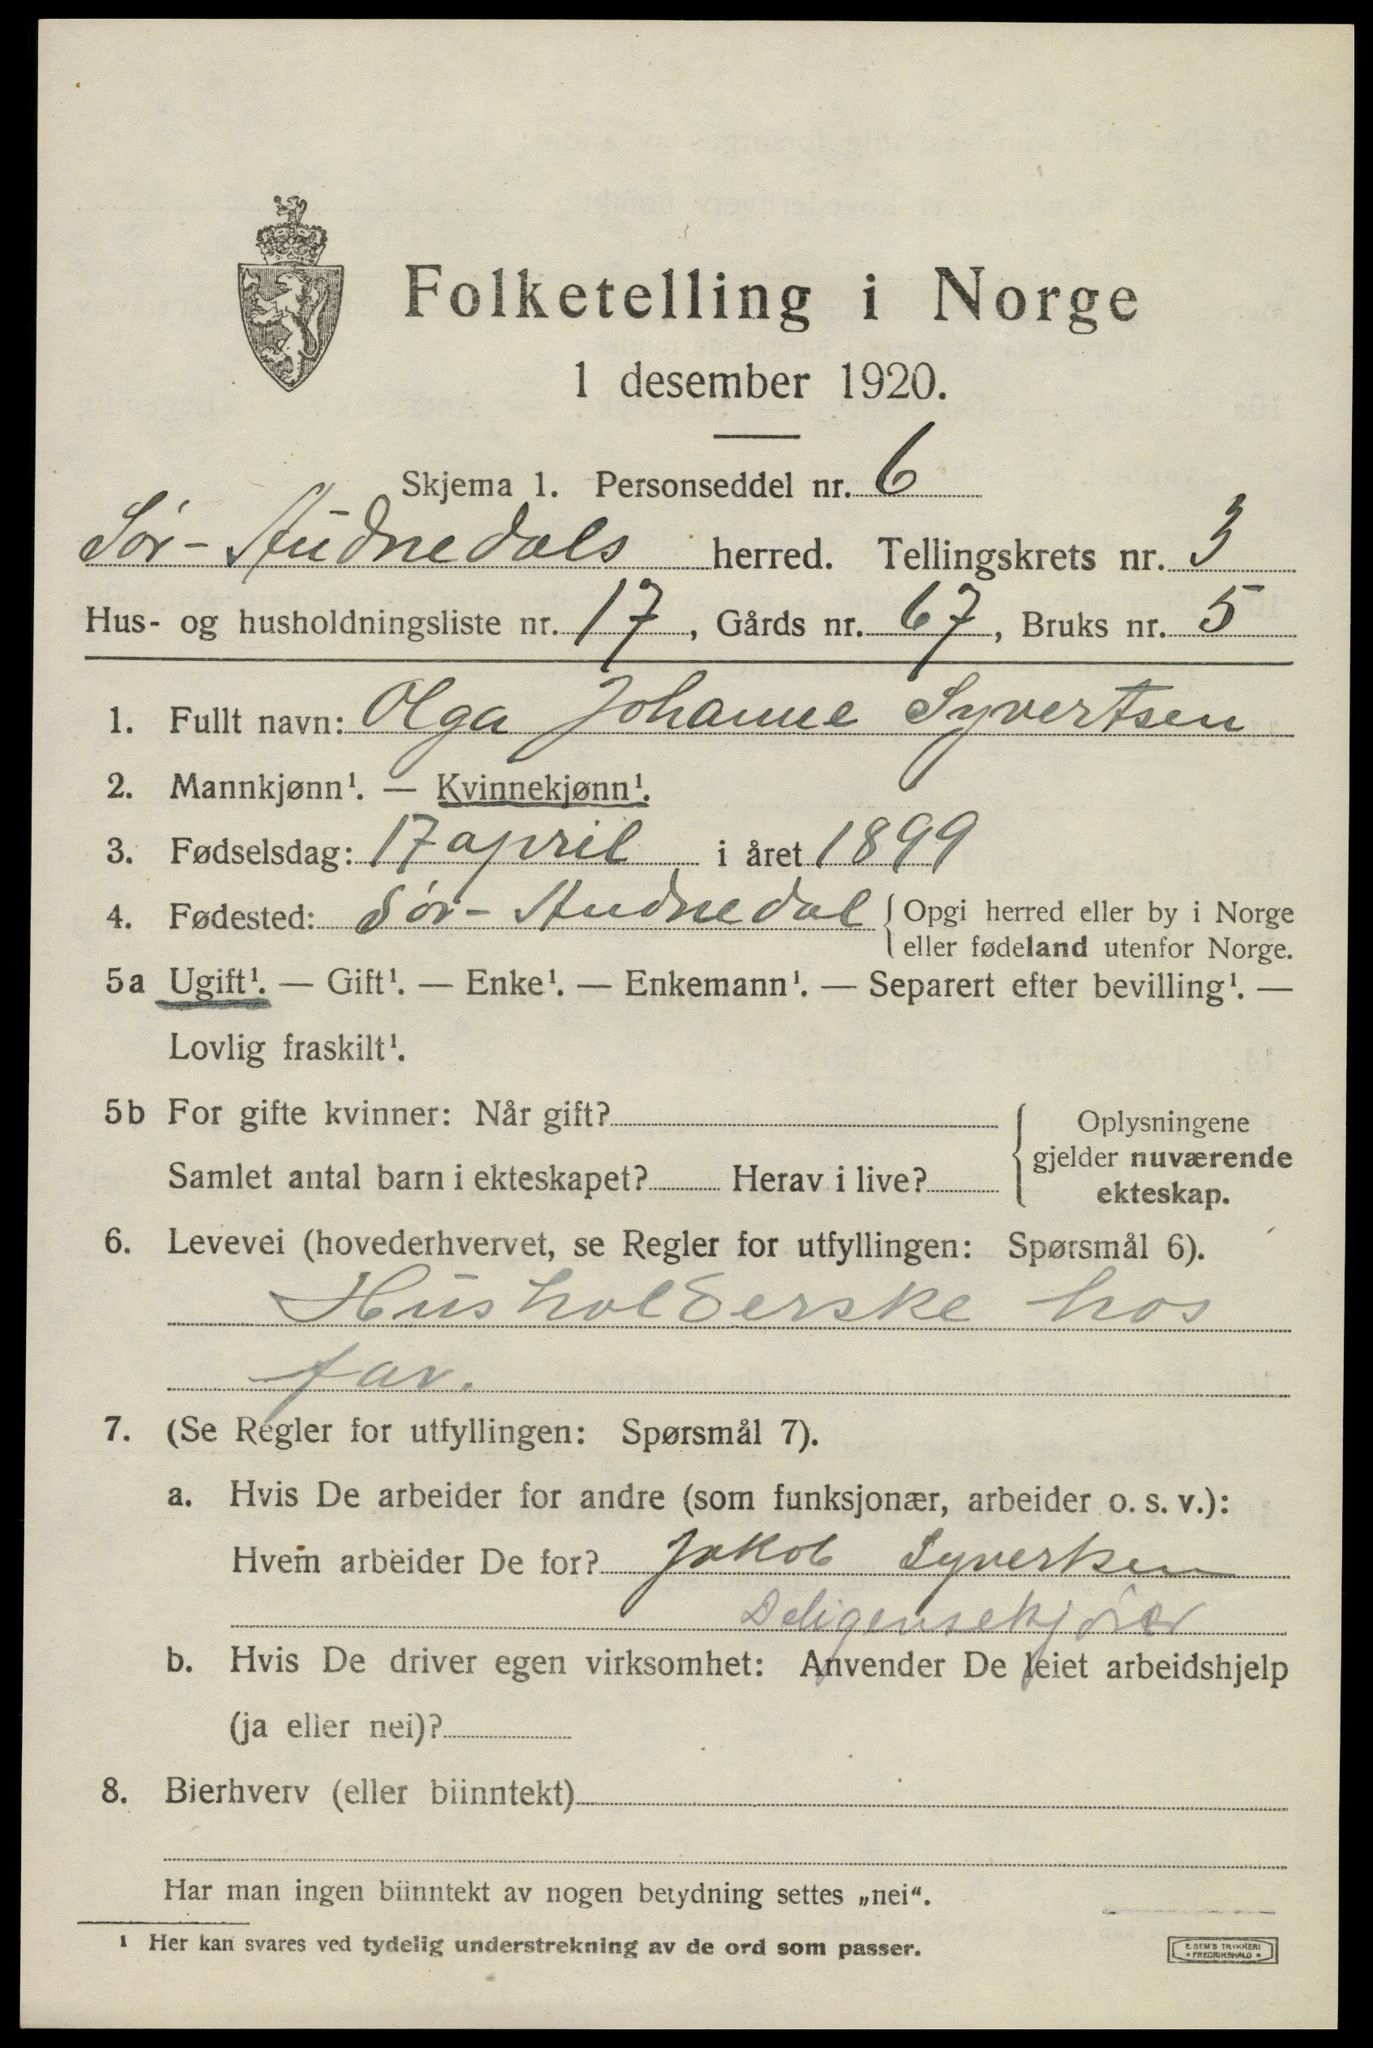 Folketelling i Norge
1 desember 1920.
Skjema 1. Personseddel nr. 6
Sør-Audnedals herred. Tellingskrets nr. 3
Hus- og husholdningsliste nr. 17, Gårds nr. 67, Bruks nr. 5
1. Fullt navn: Olga Johanne Syvertsen
2. Mannkjønn¹. — Kvinnekjønn¹.
3. Fødselsdag: 17 april i året 1899
4. Fødested: Sør-Audnedal { Opgi herred eller by i Norge
eller fødeland utenfor Norge.
5a Ugift¹. — Gift¹. — Enke¹. — Enkemann¹. — Separert efter bevilling¹. —
Lovlig fraskilt¹.
5b For gifte kvinner: Når gift?
Samlet antal barn i ekteskapet? Herav i live?
Oplysningene
gjelder nuværende
ekteskap.
6. Levevei (hovederhvervet, se Regler for utfyllingen: Spørsmål 6).
Husholderske hos
far.
7. (Se Regler for utfyllingen: Spørsmål 7).
a. Hvis De arbeider for andre (som funksjonær, arbeider o. s. v.):
Hvem arbeider De for? Jakob Syvertsen
Deligensekjører
b. Hvis De driver egen virksomhet: Anvender De leiet arbeidshjelp
(ja eller nei)?
8. Bierhverv (eller biinntekt)
Har man ingen biinntekt av nogen betydning settes „nei“.
¹ Her kan svares ved tydelig understrekning av de ord som passer.
E. SEM'S TRYKKERI
* FREDRIKSHALD *